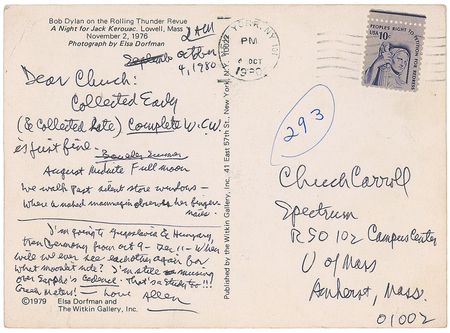 Bob Dylan on the Rolling Thunder Revue
A Night for Jack Kerouac. Lowell, Mass
November 2, 1976
Photograph by Elsa Dorfman
2 AM
October
4, 1980
Dear Chuck:
Collected Early
(& Collected Late) Complete W.C.W.
is just fine.
August Midnite Full moon
We walk past silent store windows –
Where a naked mannequin her finger
nails.
I'm going to Yugoslavia & Hungary,
then Germany from Oct 9 - Dec 11 - When
will we ever see each other again for
what moonlit nite? I'm still musing
over Sappho's Cadence. That's
Greek meters! — Love Allen
©1979 Elsa Dorfman and
The Witkin Gallery, Inc.
Published by the Witkin Gallery, Inc. 41 East 57th St. New York, N.Y. 10022
NEW YORK, NY
PM
6 OCT
1980
PEOPLE'S RIGHT TO
PETITION FOR REDRESS
USA 10c
293
Chuck Carroll
Spectrum
RSO 102 Campus Center
U of Mass
Amherst, Mass.
01002